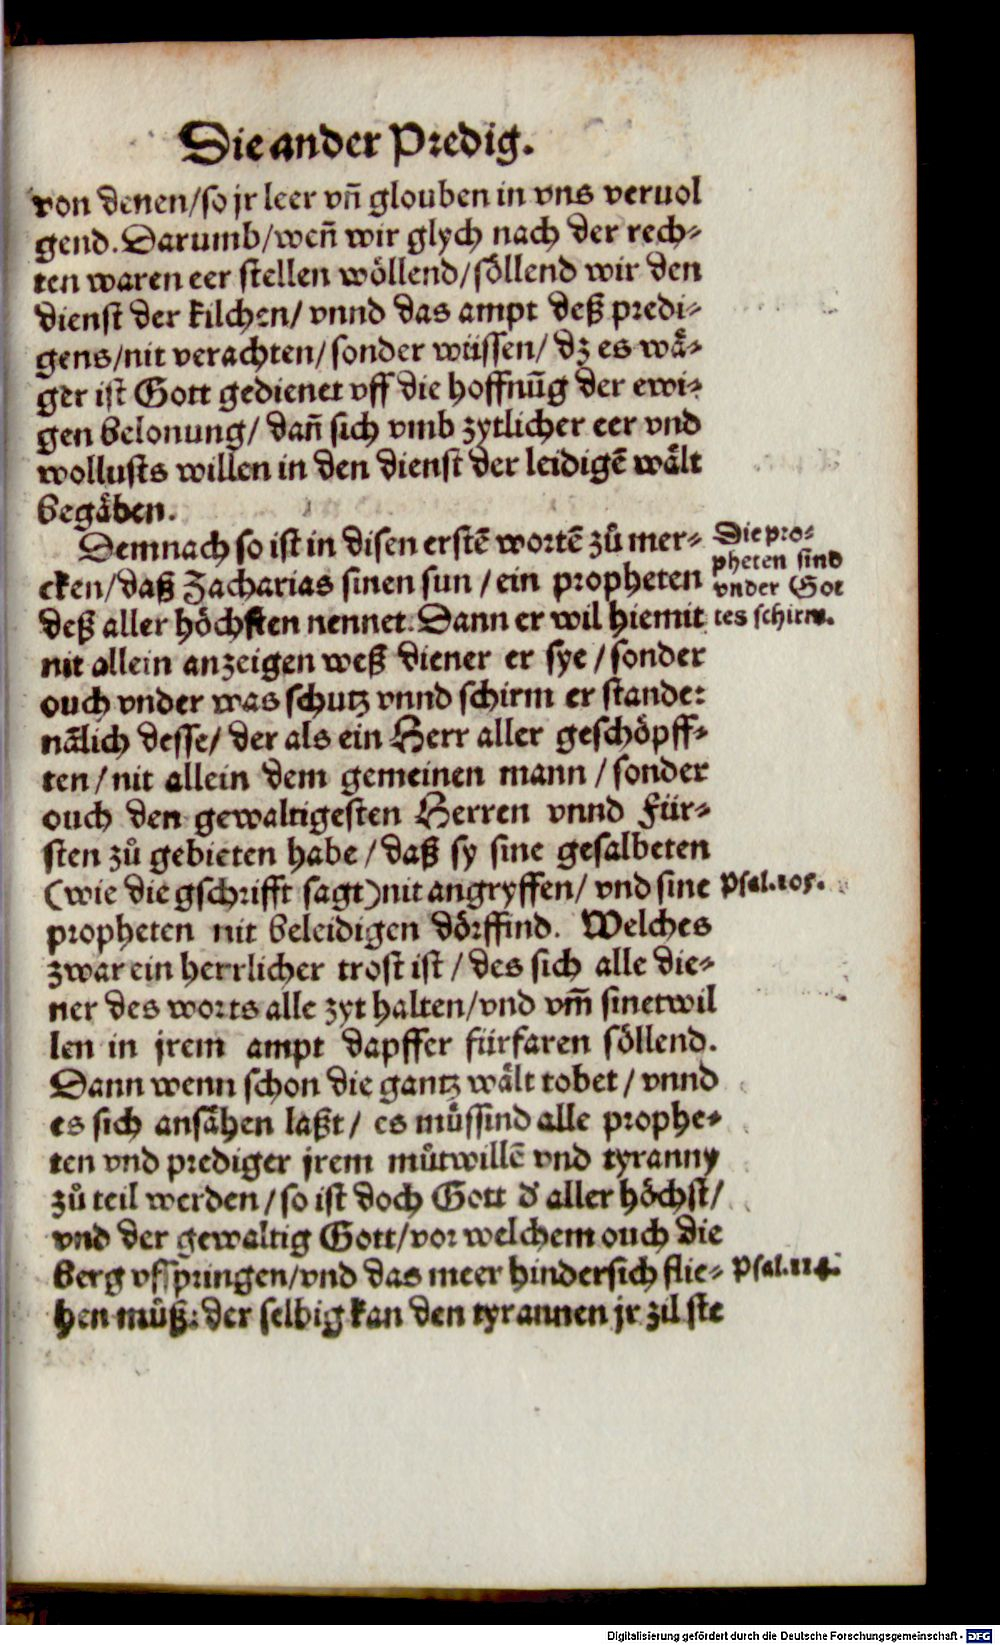 Die ander Predig.
von denen/so jr leer vn̄ glouben in vns veruol
gend. Darumb/wen̄ wir glych nach der rech⸗
ten waren eer stellen wöllend/söllend wir den
dienst der kilchen/ vnnd das ampt deß predi⸗
gens/nit verachten/ sonder wüssen/ dz es wå⸗
ger ist Gott gedienet vff die hoffnūg der ewi⸗
gen belonung/ dan̄ sich vmb zytlicher eer vnd
wollusts willen in den dienst der leidigē wålt
begåben.
Demnach so ist in disen erstē wortē zů mer⸗
cken/daß Zacharias sinen sun /ein propheten
deß aller höchsten nennet. Dann er wil hiemit
nit allein anzeigen weß diener er sye /sonder
ouch vnder was schutz vnnd schirm er stande:
nālich desse/ der als ein Herr aller geschöpff⸗
ten/nit allein dem gemeinen mann /sonder
ouch den gewaltigesten Herren vnnd Für⸗
sten zů gebieten habe /daß sy sine gesalbeten
(wie die gschrifft sagt)nit angryffen/ vnd sine
propheten nit beleidigen dörffind. Welches
zwar ein herrlicher trost ist /des sich alle die⸗
ner des worts alle zyt halten/vnd vm̄ sinetwil
len in jrem ampt dapffer fürfaren söllend.
Dann wenn schon die gantz wålt tobet /vnnd
es sich ansåhen laßt/ es můssind alle prophe⸗
ten vnd prediger jrem můtwillē vnd tyranny
zů teil werden /so ist doch Gott d' aller höchst/
vnd der gewaltig Gott/vor welchem ouch die
berg vfspringen/vnd das meer hindersich flie⸗
hen můß: der selbig kan den tyrannen jr zil ste
Die pro⸗
pheten sind
vnder Got
tes schirm.
Psal.105.
Psal.114.
Digitalisierung gefördert durch die Deutsche Forschungsgemeinschaft - DFG